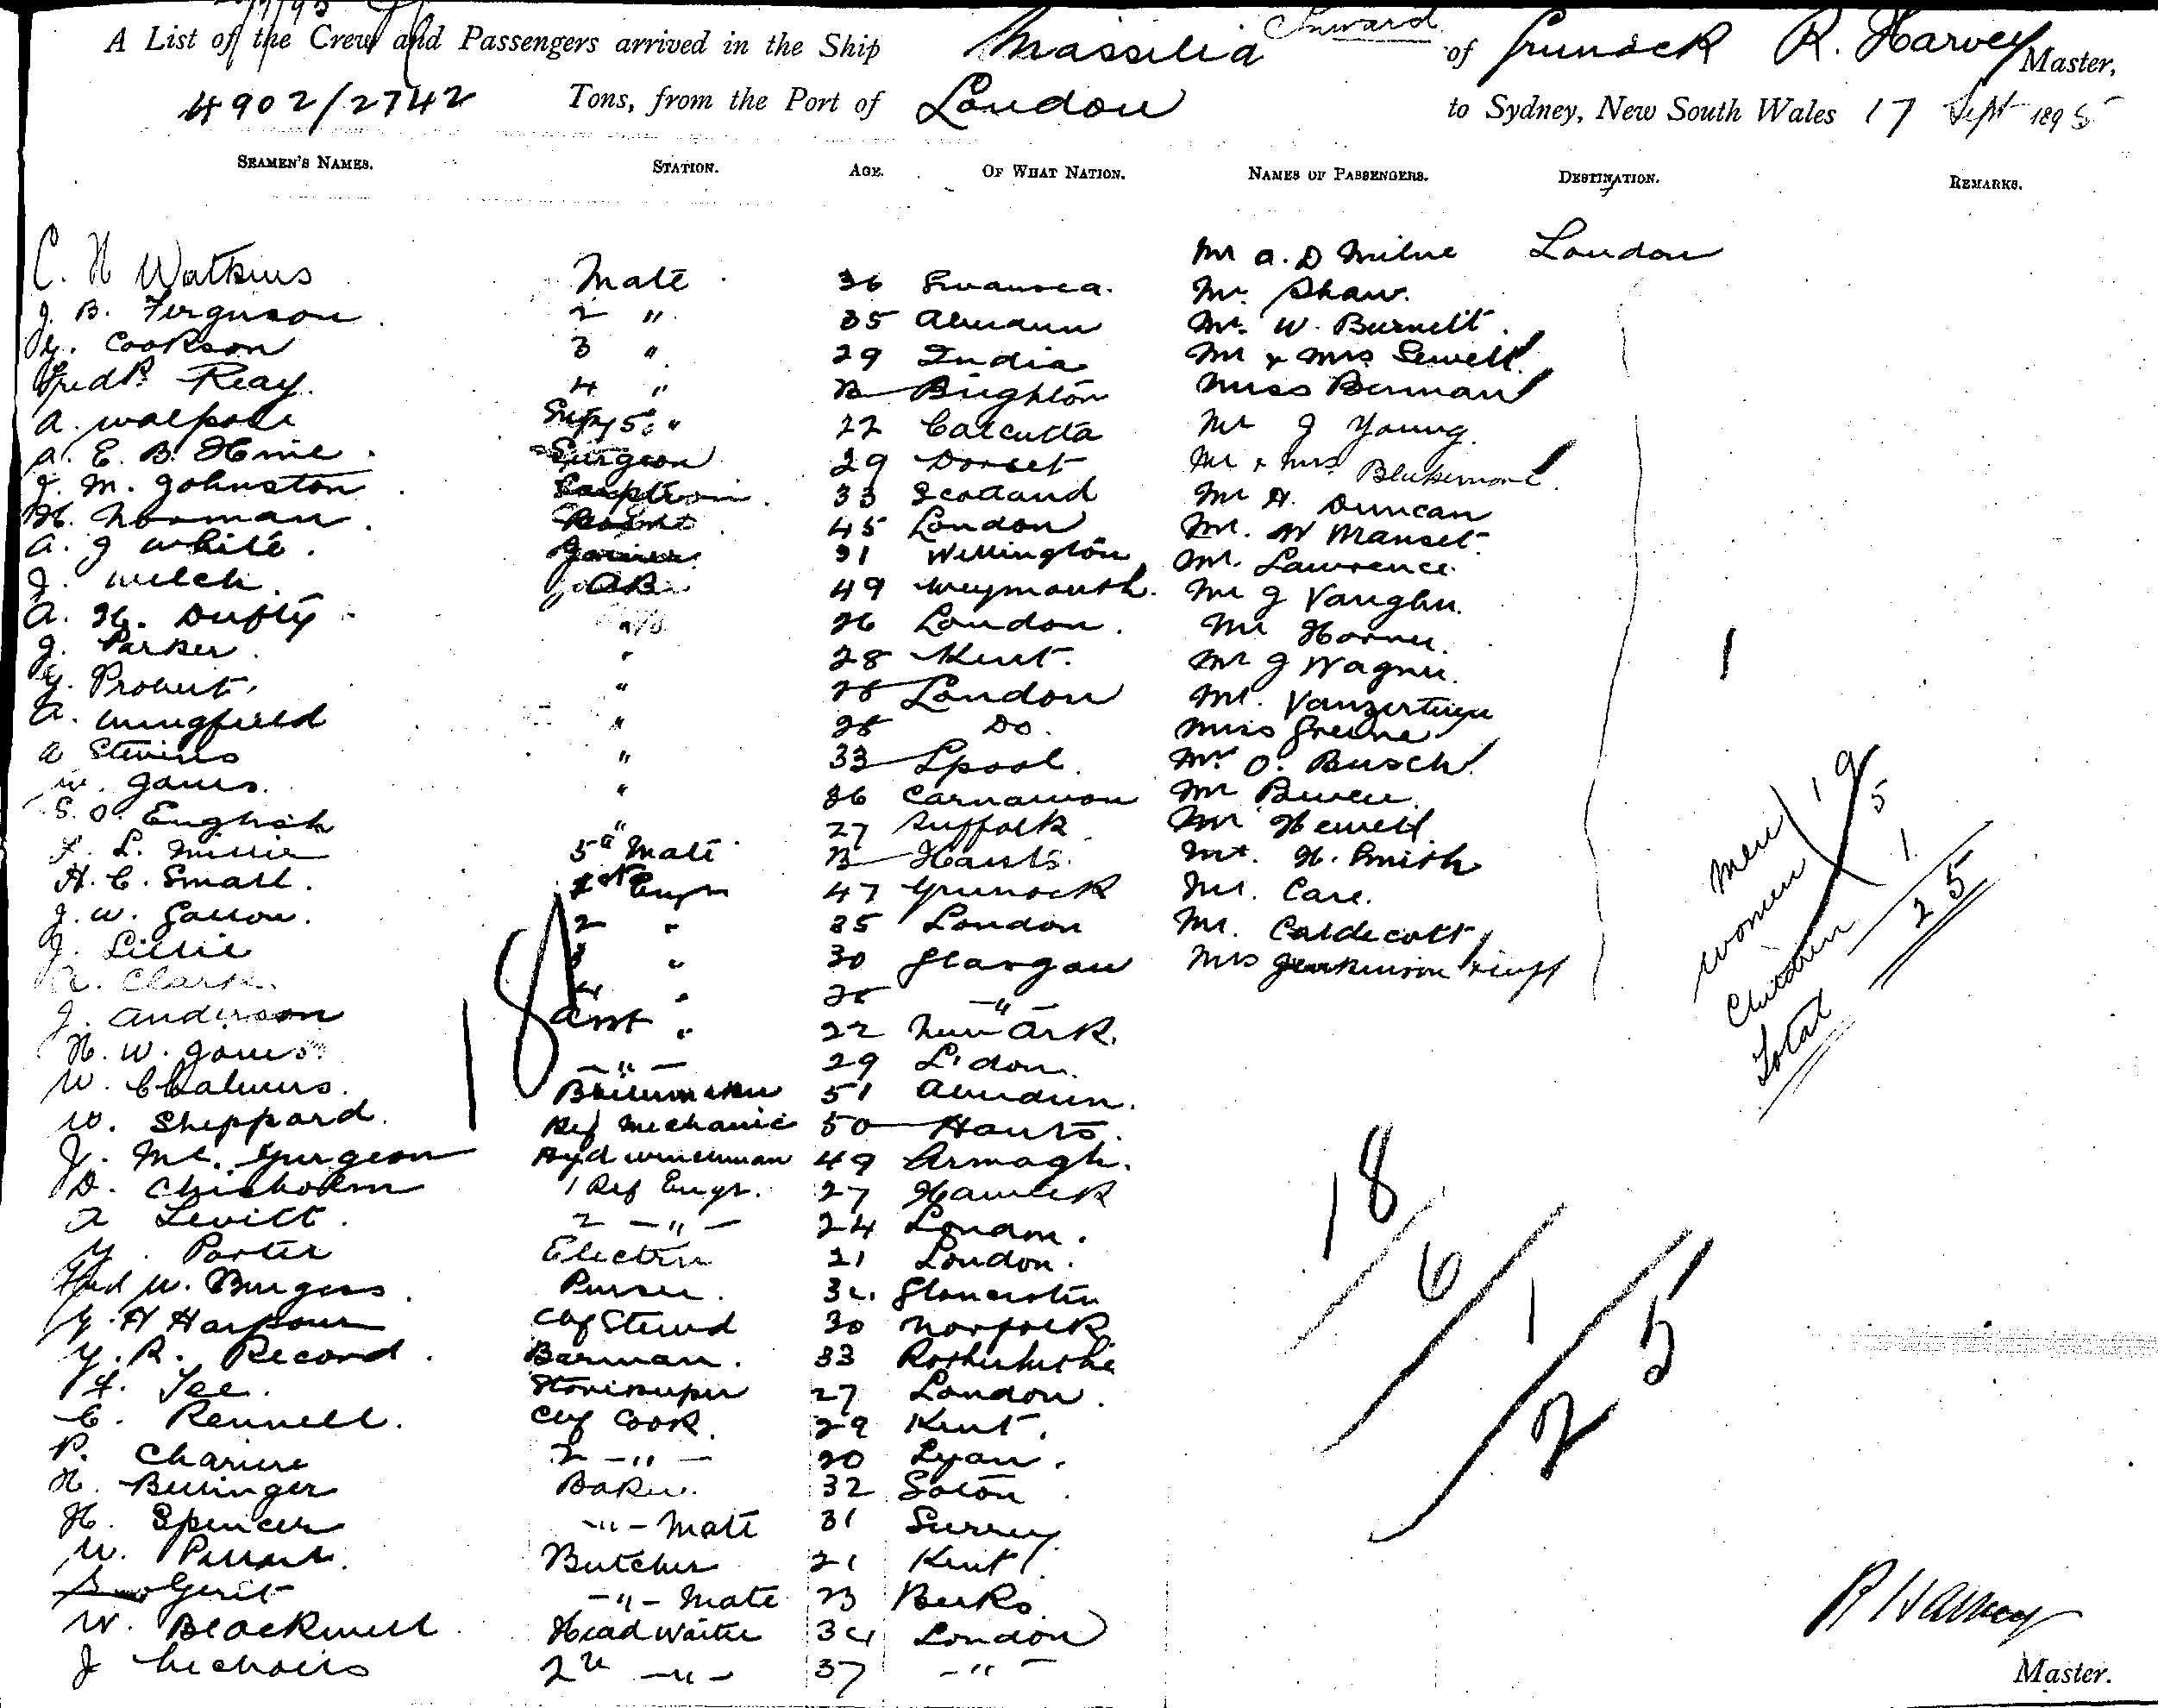 Inward
A List of the Crew and Passengers arrived in the Ship Massilia of Greenock R. Harvey Master,
4902/2742 Tons, from the Port of London to Sydney, New South Wales 17 Sept 1895
SEAMEN'S NAMES. STATION. AGE. OF WHAT NATION. NAMES OF PASSENGERS. DESTINATION. REMARKS.
Mr A. D Milne London
C. H Watkins Mate 36 Swansea. Mr. Shaw.
J. B. Ferguson 2 " 35 Aberdeen Mr. W. Burnett.
G. Cookson 3 " 29 India Mr & Mrs Sewell
Fredk Reay. 4 " 23 Brighton Miss Berman
A. Walpole Supy 5. " 22 Calcutta Mr J Young.
A. E. B. Hine. Surgeon 29 Dorset Mr & Mrs
J. M. Johnston 33 Scotland Mr H. Duncan
H. Norman. 45 London Mr. W Mansel
A. J White. 31 Wellington Mr. Lawrence
J. Welch. AB 49 Weymouth. Mr J Vaughn.
A. H. Dufty 26 London. Mr Horner.
J. Parker. " 28 Kent. Mr J Wagner.
G. Probert. " 28 London Mr.
A. Wingfield " 28 Do. Miss Greene
A Stevens " 33 Lpool. Mr O. Busch
W. James. " 36 Carnarvon Mr Bewen.
S. O. English " 27 Suffolk Mr Hewell
F. L. Millie 5th Mate 23 Hants. Mr. H. Smith
H. C. Small. 1st Engr 47 Greenock Mr. Care.
J. W. Gallon. 2 " 35 London Mr. Caldecott
J. Lillie 3 " 30 Glasgow Mrs Jenkinson & inft
A. Clark. 4 " 28 —"—
J. Anderson Asst " 22 New Ark.
H. W. James —"— 29 London.
W. Chalmers. Boilermaker 51 Aberdeen.
W. Sheppard. Ref Mechanic 50 Hants.
J. Mc. Gurgeon Hyd winchman 49 Armagh.
D. Chisholm 1 Ref Engr. 27 Hawick
A Levitt. 2 —"— 24 London.
G. Porter Electrn 21 London.
Fred W. Burgess. Purser. 34 Gloucester
G. H Harbour Chf Stewd 30 Norfolk
G. R. Record. Barman. 33 Rotherhithe
F. Tee. Storekeeper 27 London.
C. Rennell. Chf Cook. 29 Kent.
P. 2 —"— 30 Lyon.
H. Bellinger Baker. 32 Soton.
H. Spencer —"— Mate 31 Surrey.
W. Butcher 21 Kent
Gerit —"— Mate 23 Berks.
W. Blackwell Head Waiter 34 London
J Nicholls 2nd —"— 37 —"—
18
1
Men 19
Women 5
Children 1
Total 25
18
6
1
25
R Harvey
Master.